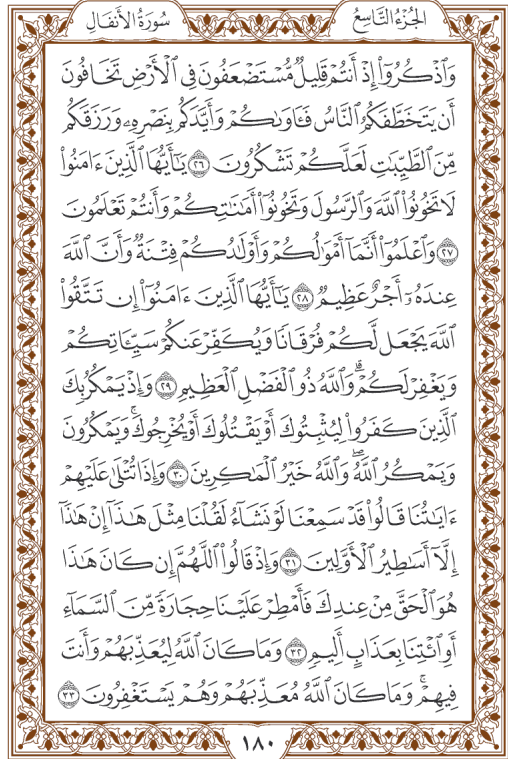 الجُزْءُ التَّاسِعُ
سُورَةُ الأَنفَالِ
وَاذْكُرُوا إِذْ أَنتُمْ قَلِيلٌ مُّسْتَضْعَفُونَ فِي الْأَرْضِ تَخَافُونَ
أَن يَتَخَطَّفَكُمُ النَّاسُ فَـَٔاوَىٰكُمْ وَأَيَّدَكُم بِنَصْرِهِۦ وَرَزَقَكُم
مِّنَ الطَّيِّبَٰتِ لَعَلَّكُمْ تَشْكُرُونَ ٢٦ يَٰٓأَيُّهَا الَّذِينَ ءَامَنُوا
لَا تَخُونُوا اللَّهَ وَالرَّسُولَ وَتَخُونُوٓا أَمَٰنَٰتِكُمْ وَأَنتُمْ تَعْلَمُونَ
٢٧ وَاعْلَمُوٓا أَنَّمَآ أَمْوَٰلُكُمْ وَأَوْلَٰدُكُمْ فِتْنَةٌ وَأَنَّ اللَّهَ
عِندَهُۥٓ أَجْرٌ عَظِيمٌ ٢٨ يَٰٓأَيُّهَا الَّذِينَ ءَامَنُوٓا إِن تَتَّقُوا
اللَّهَ يَجْعَل لَّكُمْ فُرْقَانًا وَيُكَفِّرْ عَنكُمْ سَيِّـَٔاتِكُمْ
وَيَغْفِرْ لَكُمْ ۗ وَاللَّهُ ذُو الْفَضْلِ الْعَظِيمِ ٢٩ وَإِذْ يَمْكُرُ بِكَ
الَّذِينَ كَفَرُوا لِيُثْبِتُوكَ أَوْ يَقْتُلُوكَ أَوْ يُخْرِجُوكَ ۚ وَيَمْكُرُونَ
وَيَمْكُرُ اللَّهُ ۖ وَاللَّهُ خَيْرُ الْمَٰكِرِينَ ٣٠ وَإِذَا تُتْلَىٰ عَلَيْهِمْ
ءَايَٰتُنَا قَالُوا قَدْ سَمِعْنَا لَوْ نَشَآءُ لَقُلْنَا مِثْلَ هَٰذَآ إِنْ هَٰذَآ
إِلَّآ أَسَٰطِيرُ الْأَوَّلِينَ ٣١ وَإِذْ قَالُوا اللَّهُمَّ إِن كَانَ هَٰذَا
هُوَ الْحَقَّ مِنْ عِندِكَ فَأَمْطِرْ عَلَيْنَا حِجَارَةً مِّنَ السَّمَآءِ
أَوِ ائْتِنَا بِعَذَابٍ أَلِيمٍ ٣٢ وَمَا كَانَ اللَّهُ لِيُعَذِّبَهُمْ وَأَنتَ
فِيهِمْ ۚ وَمَا كَانَ اللَّهُ مُعَذِّبَهُمْ وَهُمْ يَسْتَغْفِرُونَ ٣٣
١٨٠